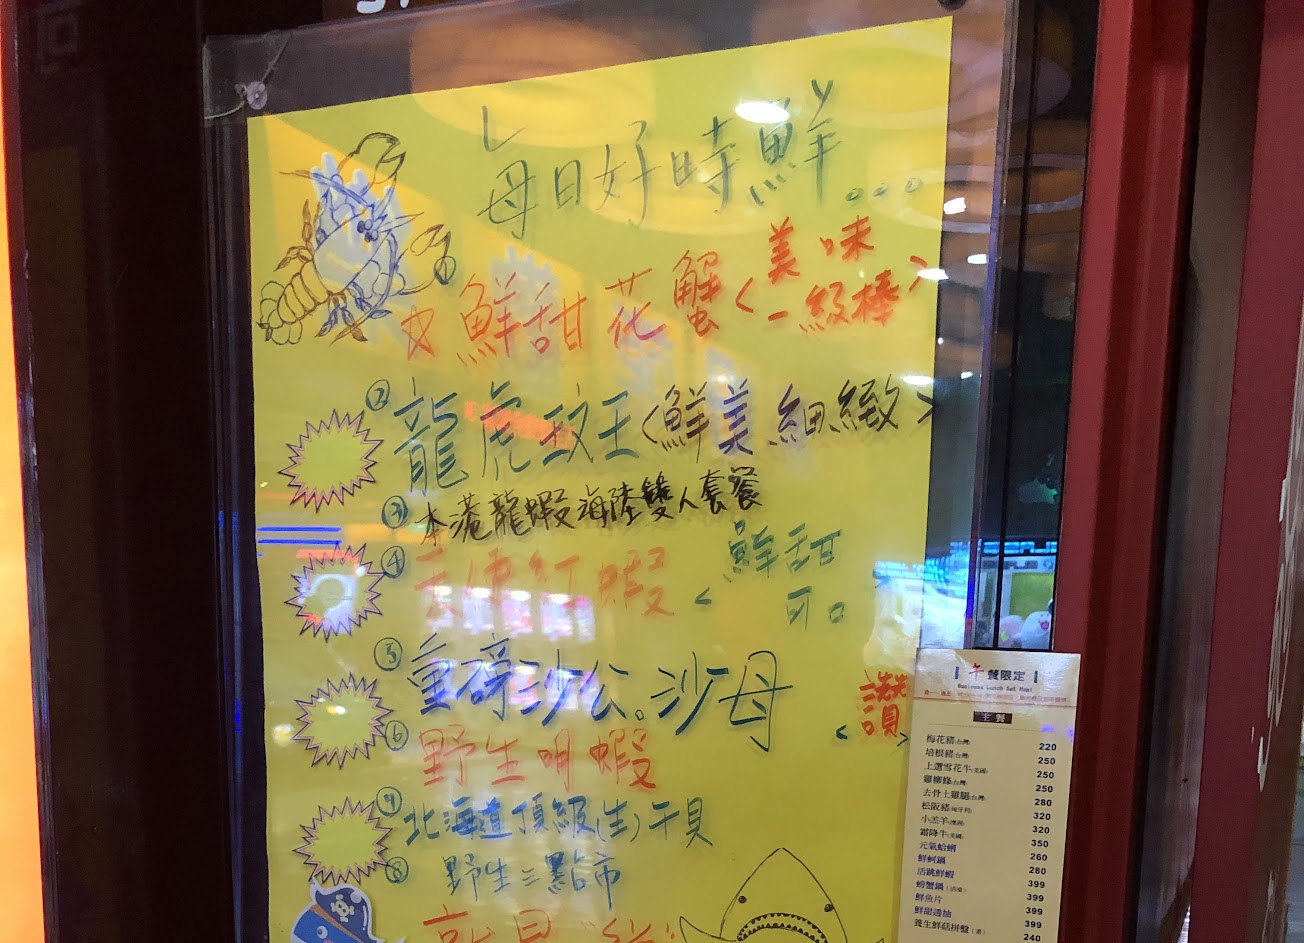 每日好時鮮...
鮮甜花蟹<美味一級棒>
② 龍虎玟王<鮮美細緻>
③ 本港龍蝦海陸雙人套餐
④ 天使紅蝦<鮮甜可。
⑤ 重磅沙公。沙母<讚>
⑥ 野生明蝦
⑦ 北海道頂級(生)干貝
⑧ 野生三點市
午餐限定
Business Lunch Set Meal
主餐
梅花豬(台灣) 220
培根豬(台灣) 250
上選雪花牛(美國) 250
雞柳條(台灣) 250
去骨土雞腿(台灣) 280
松阪豬(匈牙利) 320
小羔羊 320
霜降牛(美國) 350
元氣蛤蜊 260
鮮蚵鍋 280
活跳鮮蝦 399
螃蟹鍋 399
鮮魚片 399
鮮甜透抽 399
養生鮮菇拼盤(素) 240